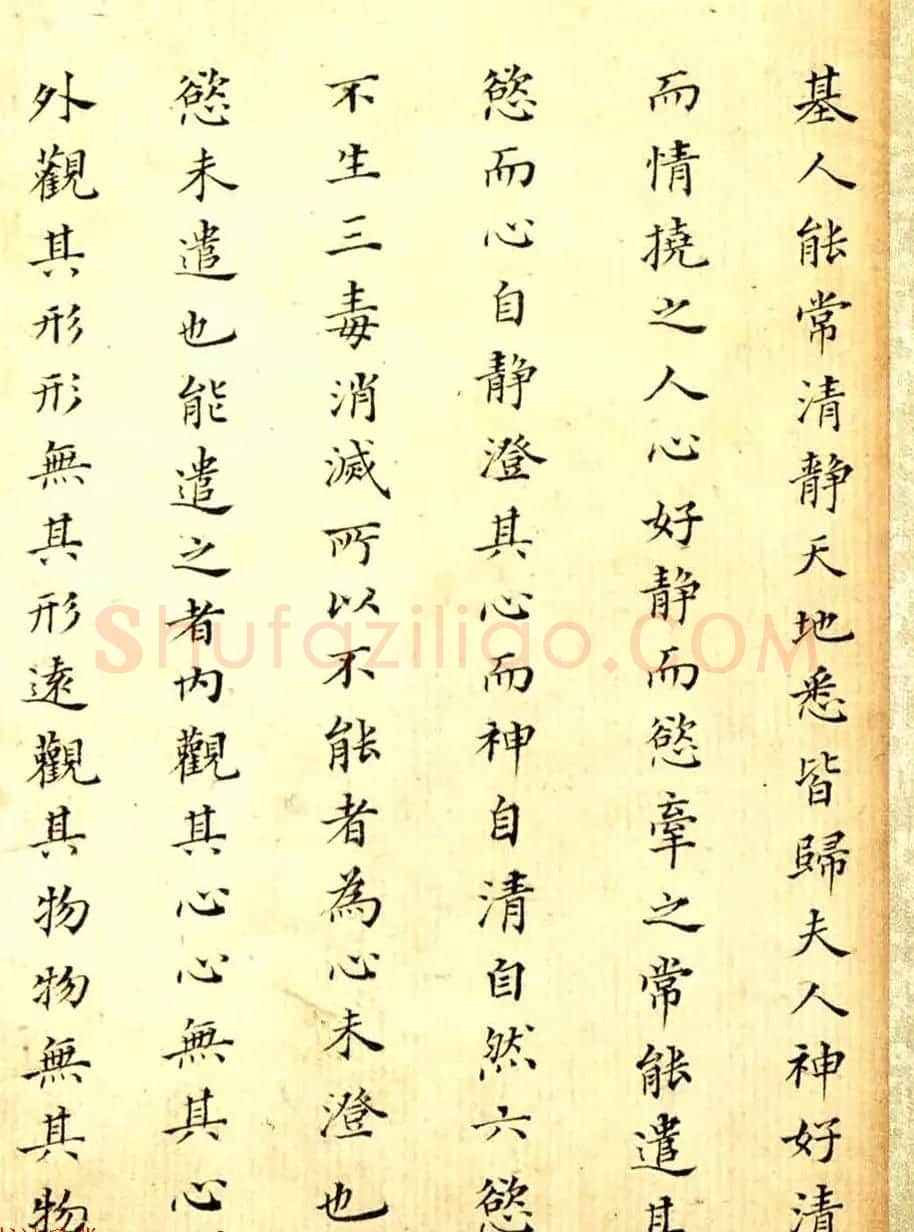 基人能常清静天地悉皆歸夫人神好清
而情撓之人心好静而慾牽之常能遣其
慾而心自静澄其心而神自清自然六慾
不生三毒消滅所以不能者為心未澄也
慾未遣也能遣之者内觀其心心無其心
外觀其形形無其形遠觀其物物無其物
Shufaziliao.COM